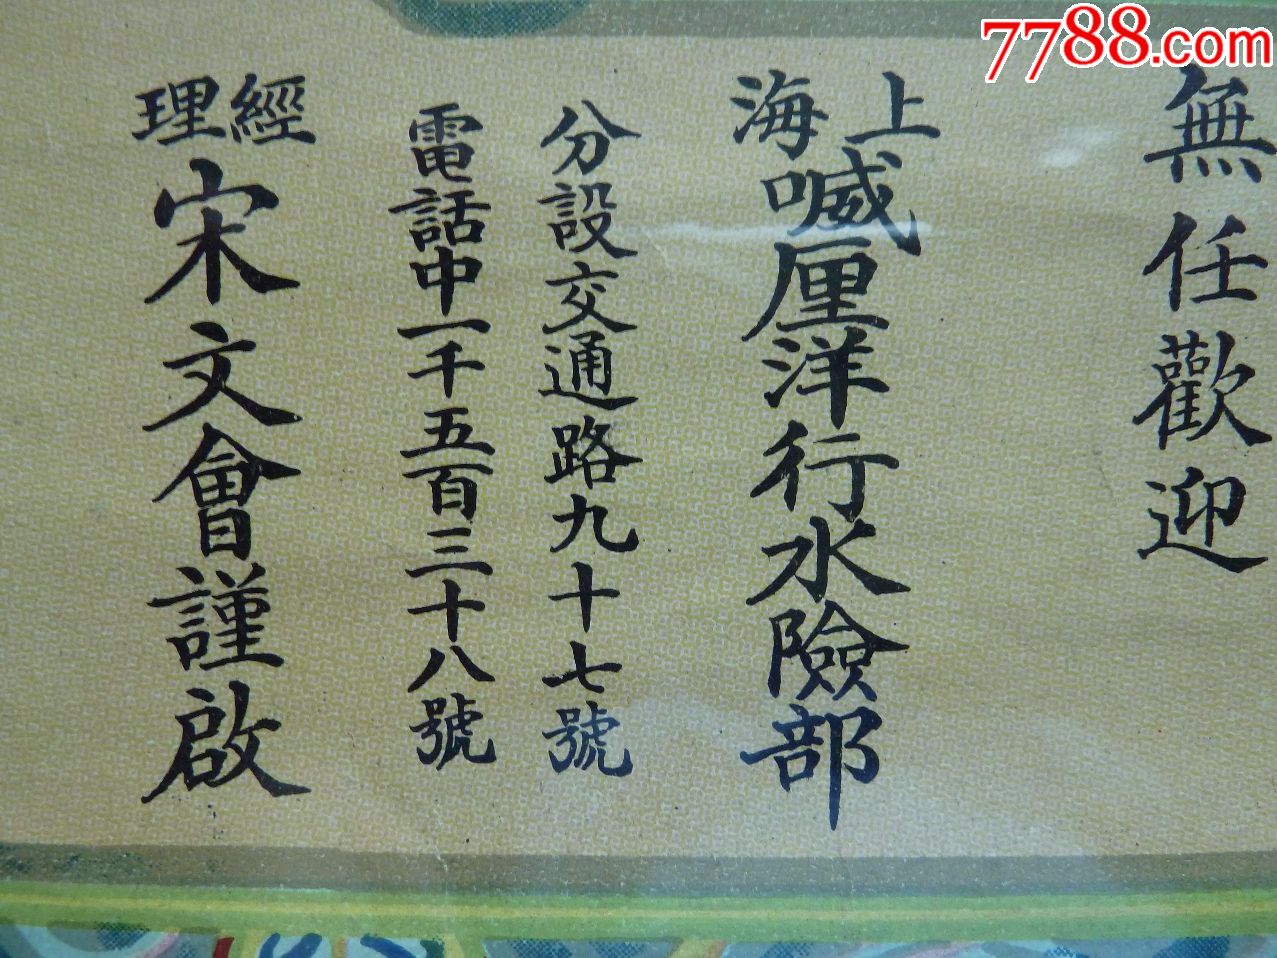 7788.com
無任歡迎
上海喊厘洋行水險部
分設交通路九十七號
電話中一千五百三十八號
經理宋文會謹啟